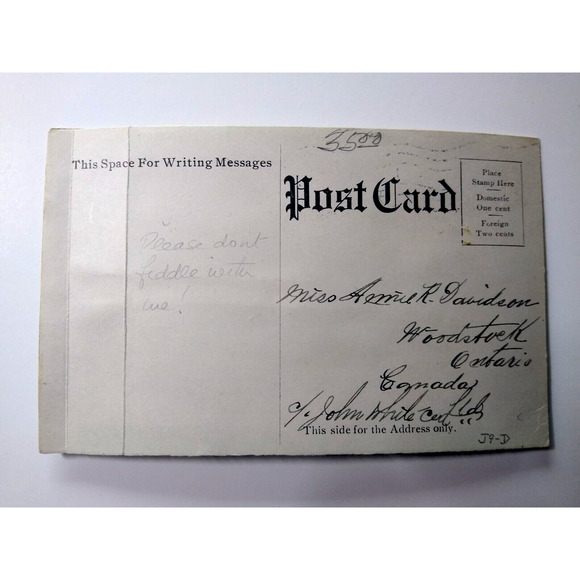 3500
This Space For Writing Messages
Post Card
Place
Stamp Here
Domestic
One cent
Foreign
Two cents
Please dont
fiddle with
me!
Miss Annie R. Davidson
Woodstock
Ontario
Canada
c/o John White Co Ltd
This side for the Address only.
J9-D